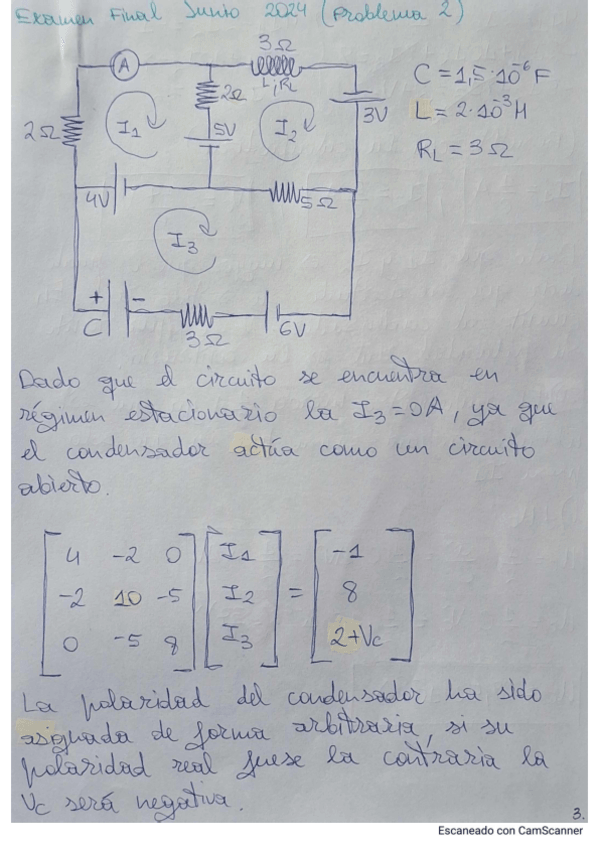 Examen Final Junio 2024 (Problema 2)
3Ω
A
L, RL
C = 1,5·10⁻⁶ F
2Ω
3V
L = 2·10⁻³ H
I1
5V
I2
2Ω
RL = 3Ω
4V
5Ω
I3
+ -
C
3Ω
6V
Dado que el circuito se encuentra en
régimen estacionario la I3 = 0A, ya que
el condensador actúa como un circuito
abierto.
4 -2 0 I1 -1
-2 10 -5 I2 = 8
0 -5 8 I3 2+Vc
La polaridad del condensador ha sido
asignada de forma arbitraria, si su
polaridad real fuese la contraria la
Vc será negativa.
3.
Escaneado con CamScanner